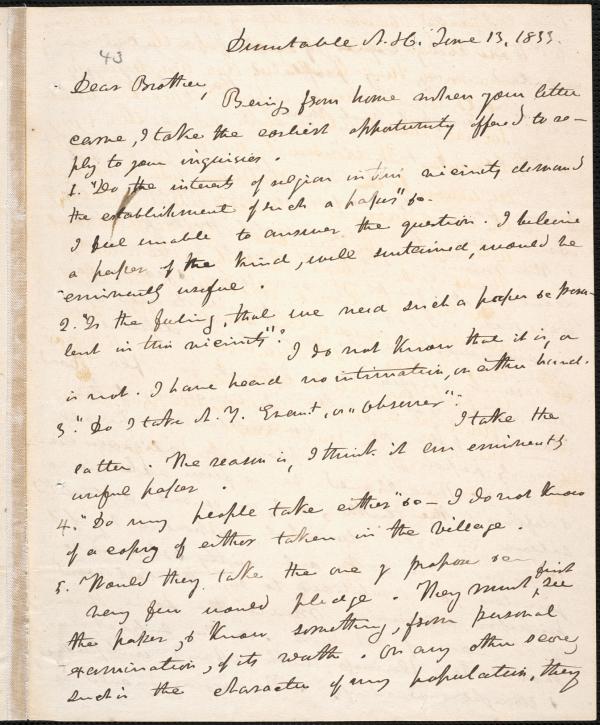 43
Dunstable N.H. June 13, 1833.
Dear Brother,
Being from home when your letter
came, I take the earliest opportunity offered to re-
ply to your inquiries.
1. "Do the interests of religion in this vicinity demand
the establishment of such a paper" &c.
I feel unable to answer the question. I believe
a paper of the kind, well sustained, would be
eminently useful.
2. "Is the feeling, that we need such a paper &c preva-
lent in this vicinity"?
I do not know that it is, or
is not. I have heard no intimation, on either hand.
3. "Do I take N. Y. Evanst, or "Observer"?
I take the
latter. The reason is, I think it an eminently
useful paper.
4. "Do my people take either" &c— I do not know
of a copy of either taken in the village.
5. "Would they take the one y propose
very few would pledge. They must, first see
the paper, & know something, from personal
examination, of its worth. On any other score,
such is the character of my population, they